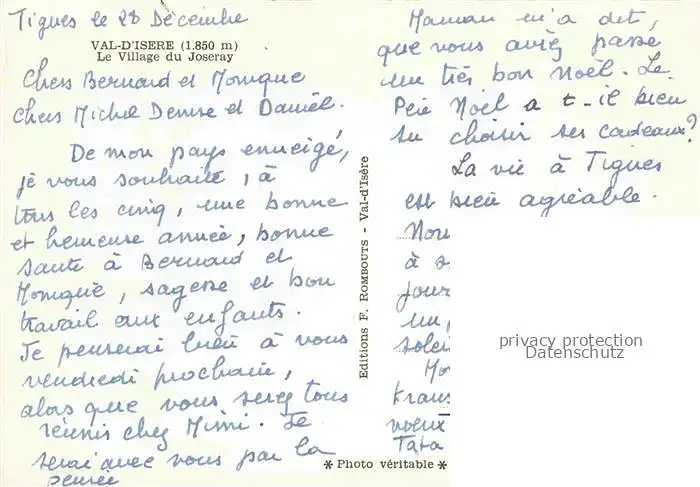 Tignes le 28 Décembre
VAL-D'ISERE (1.850 m)
Le Village du Joseray
Chers Bernard et Monique
Chers Michel Denise et Daniël.
De mon pays enneigé,
je vous souhaite, à
tous les cinq, une bonne
et heureuse année, bonne
santé à Bernard et
Monique, sagesse et bon
travail aux enfants.
Je penserai bien à vous
vendredi prochain,
alors que vous serez tous
réunis chez Mimi. Je
serai avec vous par la
pensée
Editions F. ROMBOUTS - Val-d'Isère
Maman m'a dit,
que vous aviez passé
un très bon Noël. Le
Père Noël a t-il bien
su choisir ses cadeaux?
La vie à Tignes
est bien agréable.
Nou
à s
jour
un
soleil
trans
voeux
Tata
* Photo véritable *
privacy protection
Datenschutz